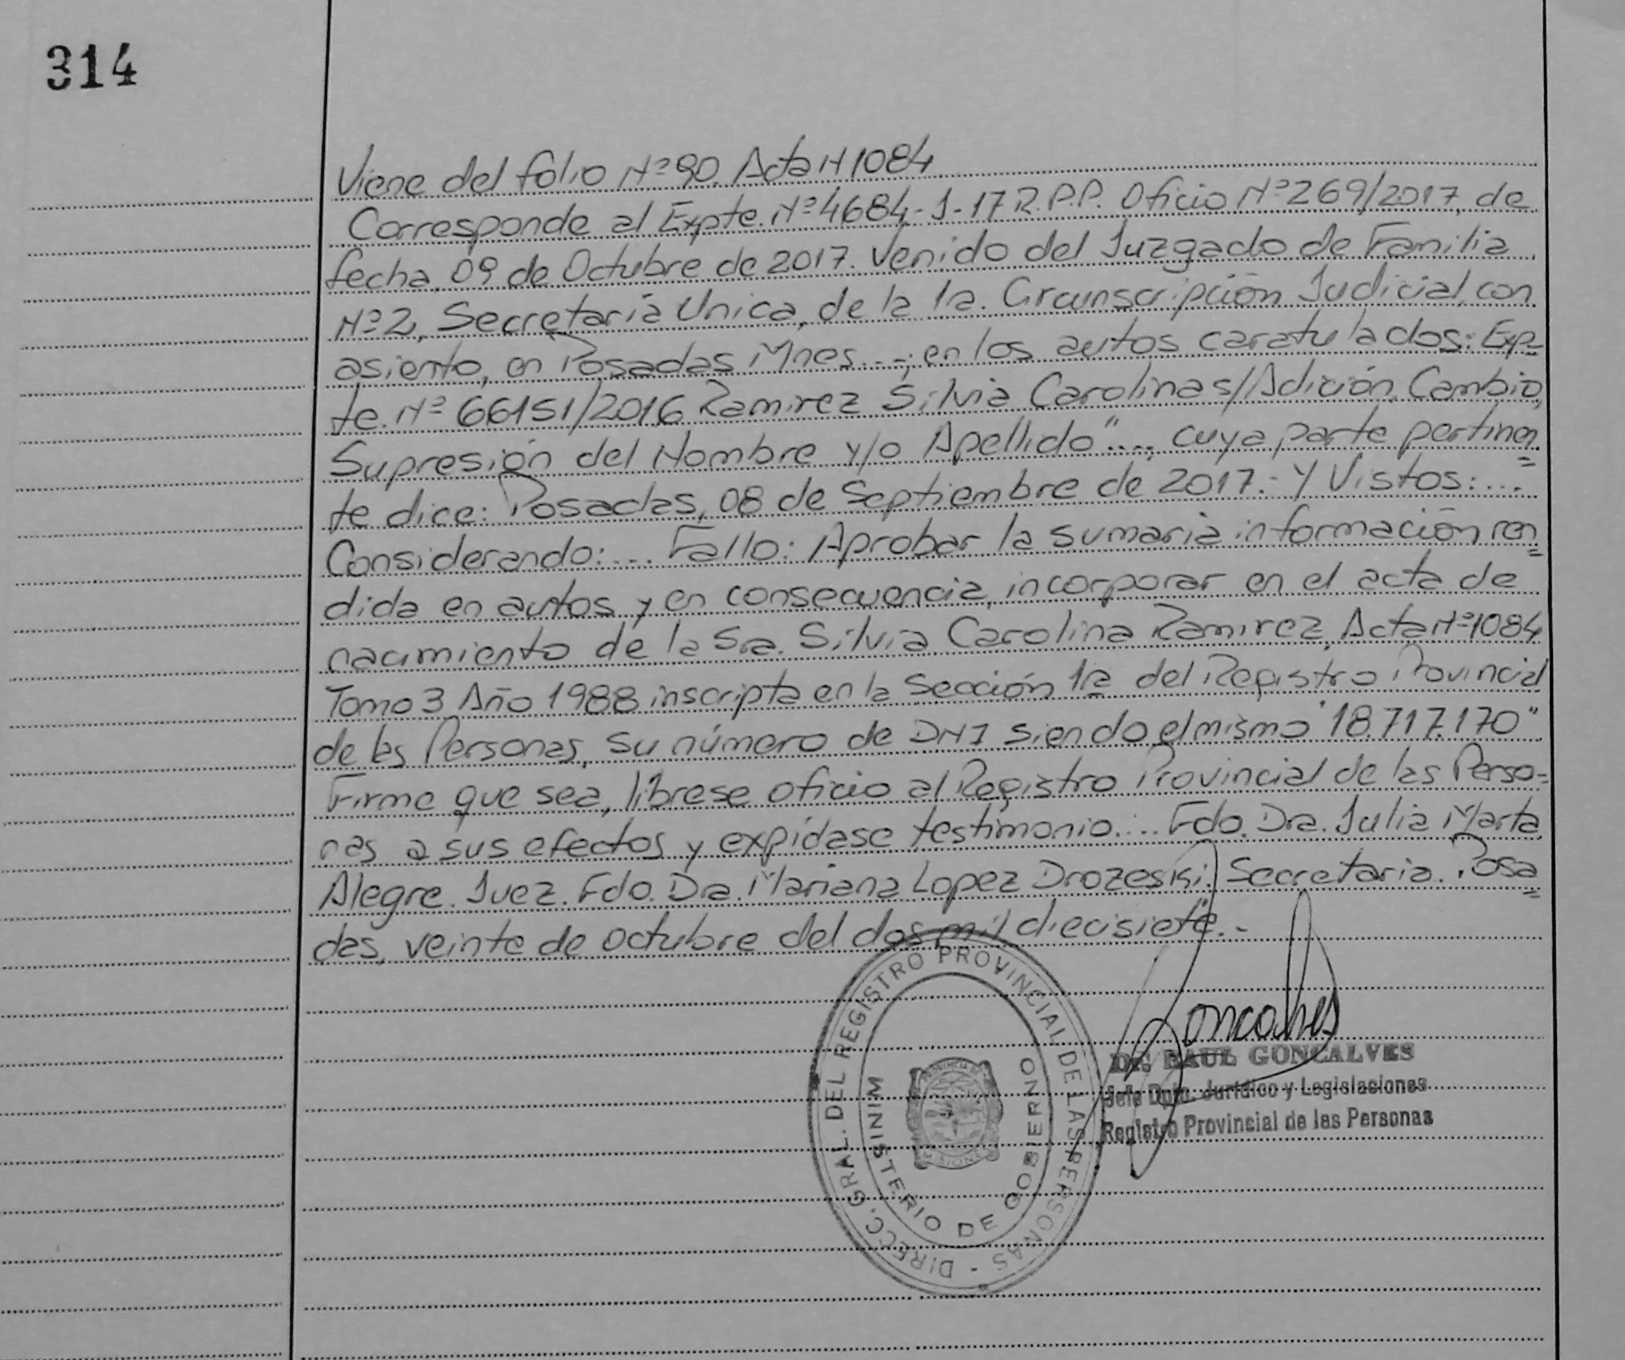 314
Viene del folio Nº 90. Acta N 1084
Corresponde al Expte. Nº 4684-J-17 R.P.P. Oficio Nº 269/2017, de
fecha, 09 de Octubre de 2017. Venido del Juzgado de Familia
Nº 2, Secretaría Unica, de la 1a. Circunscripción Judicial, con
asiento, en Posadas Mnes...; en los autos caratulados: Exp-
te. Nº 66151/2016 Ramirez Silvia Carolina s/Adición, Cambio,
Supresión del Nombre y/o Apellido"..., cuya parte pertinen=
te dice: Posadas, 08 de Septiembre de 2017.- Y Vistos:...
Considerando:... Fallo: Aprobar la sumaria información ren=
dida en autos y en consecuencia, incorporar en el acta de
nacimiento de la Sra. Silvia Carolina Ramirez, Acta Nº 1084
Tomo 3 Año 1988 inscripta en la Sección 1ra del Registro Provincial
de las Personas, su número de DNI siendo el mismo "18.717.170"
Firme que sea, líbrese oficio al Registro Provincial de las Perso=
nas a sus efectos y expídase testimonio.... Fdo. Dra. Julia Marta
Alegre. Juez. Fdo. Dra. Mariana Lopez Drozeski. Secretaria. Posa=
das, veinte de octubre del dos mil diecisiete.-
DIRECC. GRAL. DEL REGISTRO PROVINCIAL DE LAS PERSONAS -
MINISTERIO DE GOBIERNO
PROVINCIA DE
MISIONES
Goncalves
Dr. RAUL GONCALVES
Jefe Dpto. Jurídico y Legislaciones
Registro Provincial de las Personas